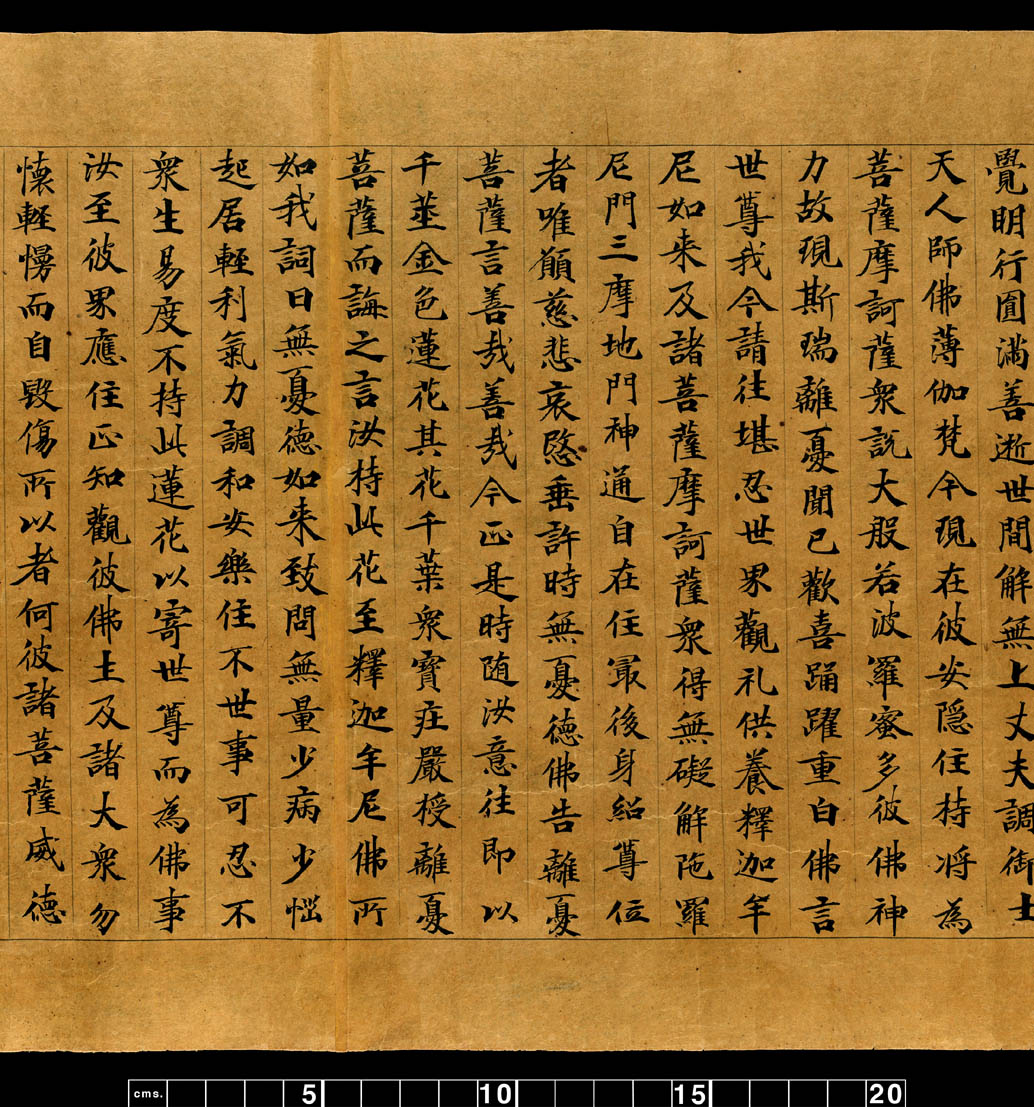 覺明行圓滿善逝世間解無上丈夫調御士
天人師佛薄伽梵今現在彼安隱住持将為
菩薩摩訶薩衆說大般若波羅蜜多彼佛神
力故現斯瑞離憂聞已歡喜踊躍重白佛言
世尊我今請往堪忍世界觀礼供養釋迦牟
尼如来及諸菩薩摩訶薩衆得無礙解陁羅
尼門三摩地門神通自在住冣後身紹尊位
者唯願慈悲哀愍垂許時無憂德佛告離憂
菩薩言善哉善哉今正是時随汝意往即以
千莖金色蓮花其花千葉衆寶庄嚴授離憂
菩薩而誨之言汝持此花至釋迦牟尼佛所
如我詞曰無憂德如来致問無量少病少惱
起居輕利氣力調和安樂住不世事可忍不
衆生易度不持此蓮花以寄世尊而為佛事
汝至彼界應住正知觀彼佛土及諸大衆勿
懐輕慢而自毀傷所以者何彼諸菩薩威德
cms. 5 10 15 20